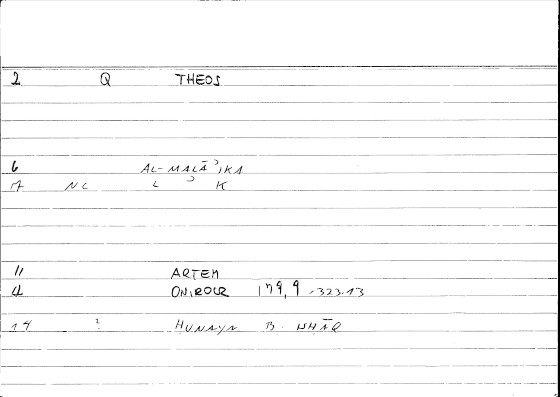 2 Q THEOS
6 AL-MALĀʾIKA
17 NC L ʾ K
11 ARTEM
4 ONIROCR 179,9 -323.13
14 ? HUNAYN B. ISHĀQ